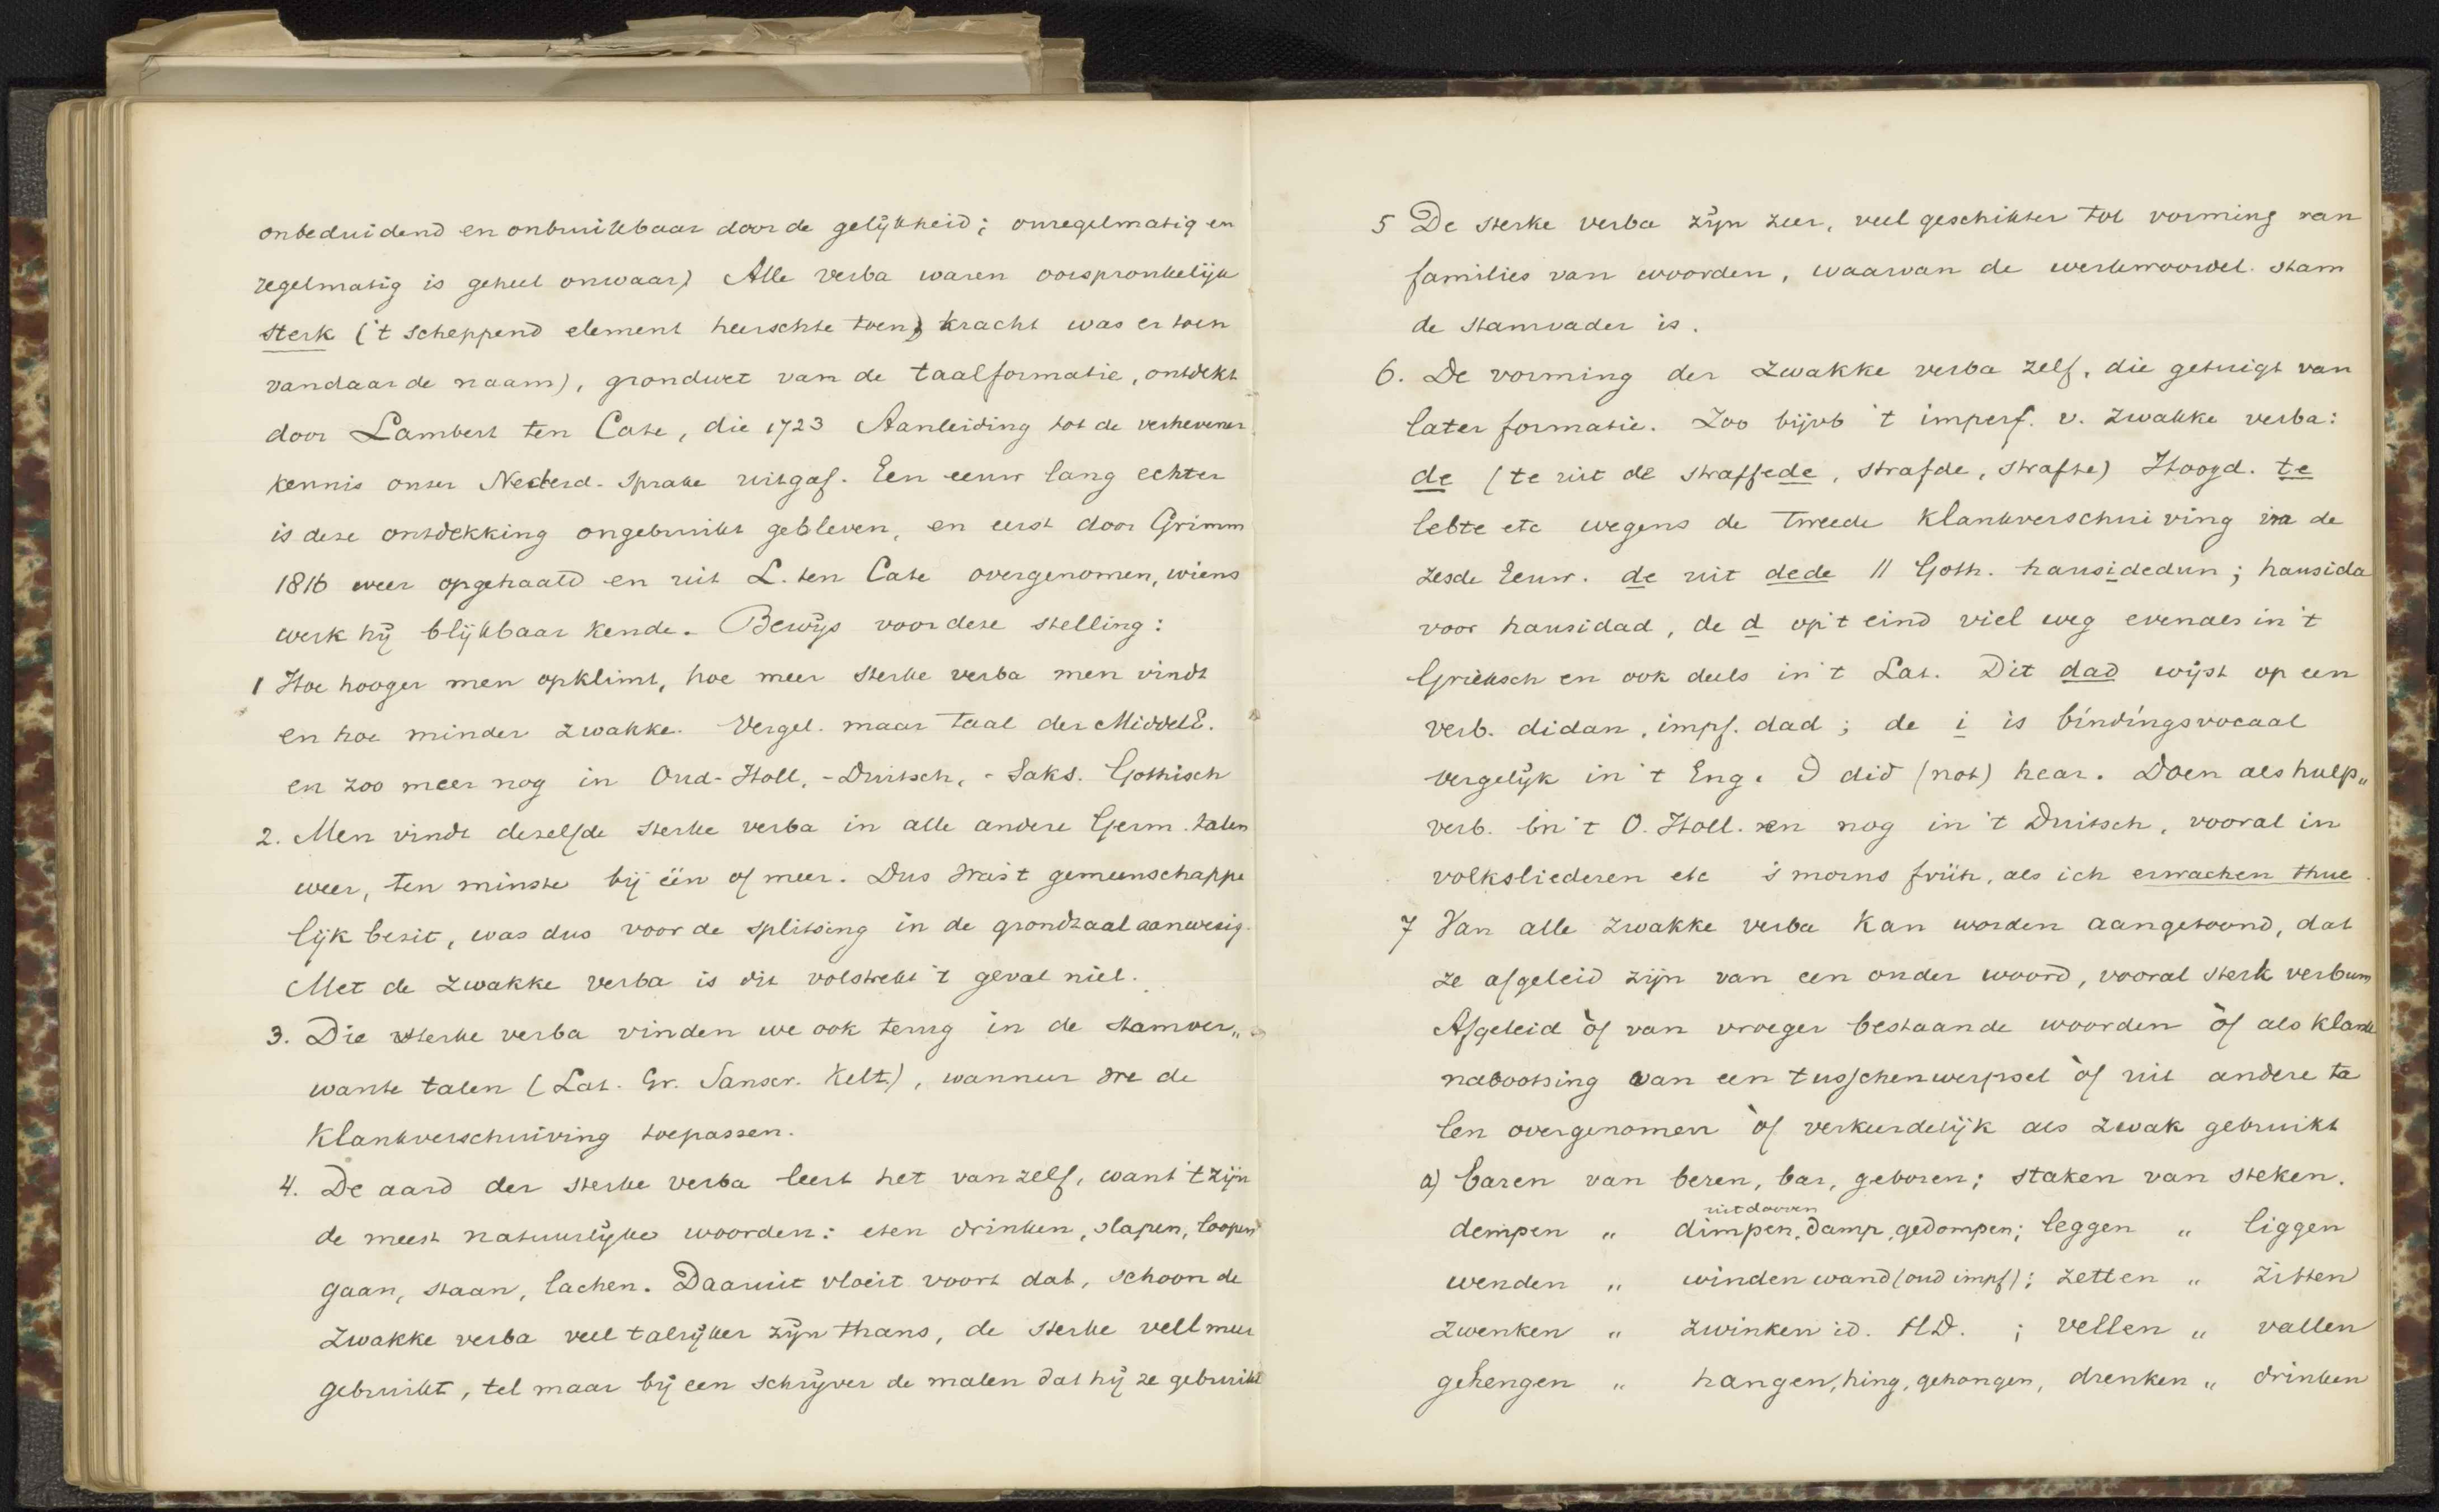 onbeduidend en onbruikbaar door de gelijkheid; onregelmatig en
regelmatig is geheel onwaar) Alle verba waren oorspronkelijk
sterk ('t scheppend element heerschte toen) kracht was er toen
vandaar de naam), grondwet van de taalformatie, ontdekt
door Lambert ten Cate, die 1723 Aanleiding tot de verhevener
kennis onser Nederd. Sprake uitgaf. Een eeuw lang echter
is deze ontdekking ongebruikt gebleven, en eerst door Grimm
1816 weer opgehaald en uit L. ten Cate overgenomen, wiens
werk hij blijkbaar kende. Bewijs voor deze stelling:
1 Hoe hooger men opklimt, hoe meer sterke verba men vindt
en hoe minder zwakke. Vergel. maar taal der MiddelE.
en zoo meer nog in Oud-Holl, -Duitsch, -Saks. Gothisch
2. Men vindt dezelfde sterke verba in alle andere Germ. talen
weer, ten minste bij één of meer. Dus was 't gemeenschappe
lijk bezit, was dus voor de splitsing in de grondtaal aanwezig.
Met de zwakke verba is dit volstrekt 't geval niet.
3. Die sterke verba vinden we ook terug in de stamver„
wante talen (Lat. Gr. Sanscr. Kelt.), wanneer we de
Klankverschuiving toepassen.
4. De aard der sterke verba leert het van zelf, want 't zijn
de meest natuurlijke woorden: eten drinken, slapen, loopen
gaan, staan, lachen. Daaruit vloeit voort dat, schoon de
zwakke verba veel talrijker zijn thans, de sterke veel meer
gebruikt, tel maar bij een schrijver de malen dat hij ze gebruikt
5 De sterke verba zijn zeer, veel geschikter tot vorming van
families van woorden, waarvan de werkwoordel. stam
de stamvader is.
6. De vorming der zwakke verba zelf, die getuigt van
later formatie. Zoo bijvb 't imperf. v. zwakke verba:
de (te uit de straffede, strafde, strafte) Hoogd. te
lebte etc wegens de tweede Klankverschuiving na de
zesde Eeuw. de uit dede // Goth. hausidedun; hausida
voor hausidad, de d op 't eind viel weg evenals in 't
Grieksch en ook deels in 't Lat. Dit dad wijst op een
verb. didan, impf. dad; de i is bindingsvocaal
vergelijk in 't Eng. I did (not) hear. Doen als hulp„
verb. in 't O. Holl. en nog in 't Duitsch, vooral in
volksliederen etc 's morns früh, als ich erwachen thue.
7 Van alle zwakke verba kan worden aangetoond, dat
ze afgeleid zijn van een ander woord, vooral sterk verbum
Afgeleid òf van vroeger bestaande woorden òf als klank
nabootsing van een tusschenwerpsel òf uit andere ta
len overgenomen òf verkeerdelijk als zwak gebruikt
a) baren van beren, bar, geboren; staken van steken.
uitdooven
dempen „ dimpen, damp, gedompen; leggen „ liggen
wenden „ winden wand (oud impf); zetten „ zitten
zwenken „ zwinken id. H.D. ; vellen „ vallen
gehengen „ hangen, hing, gehangen, drenken „ drinken